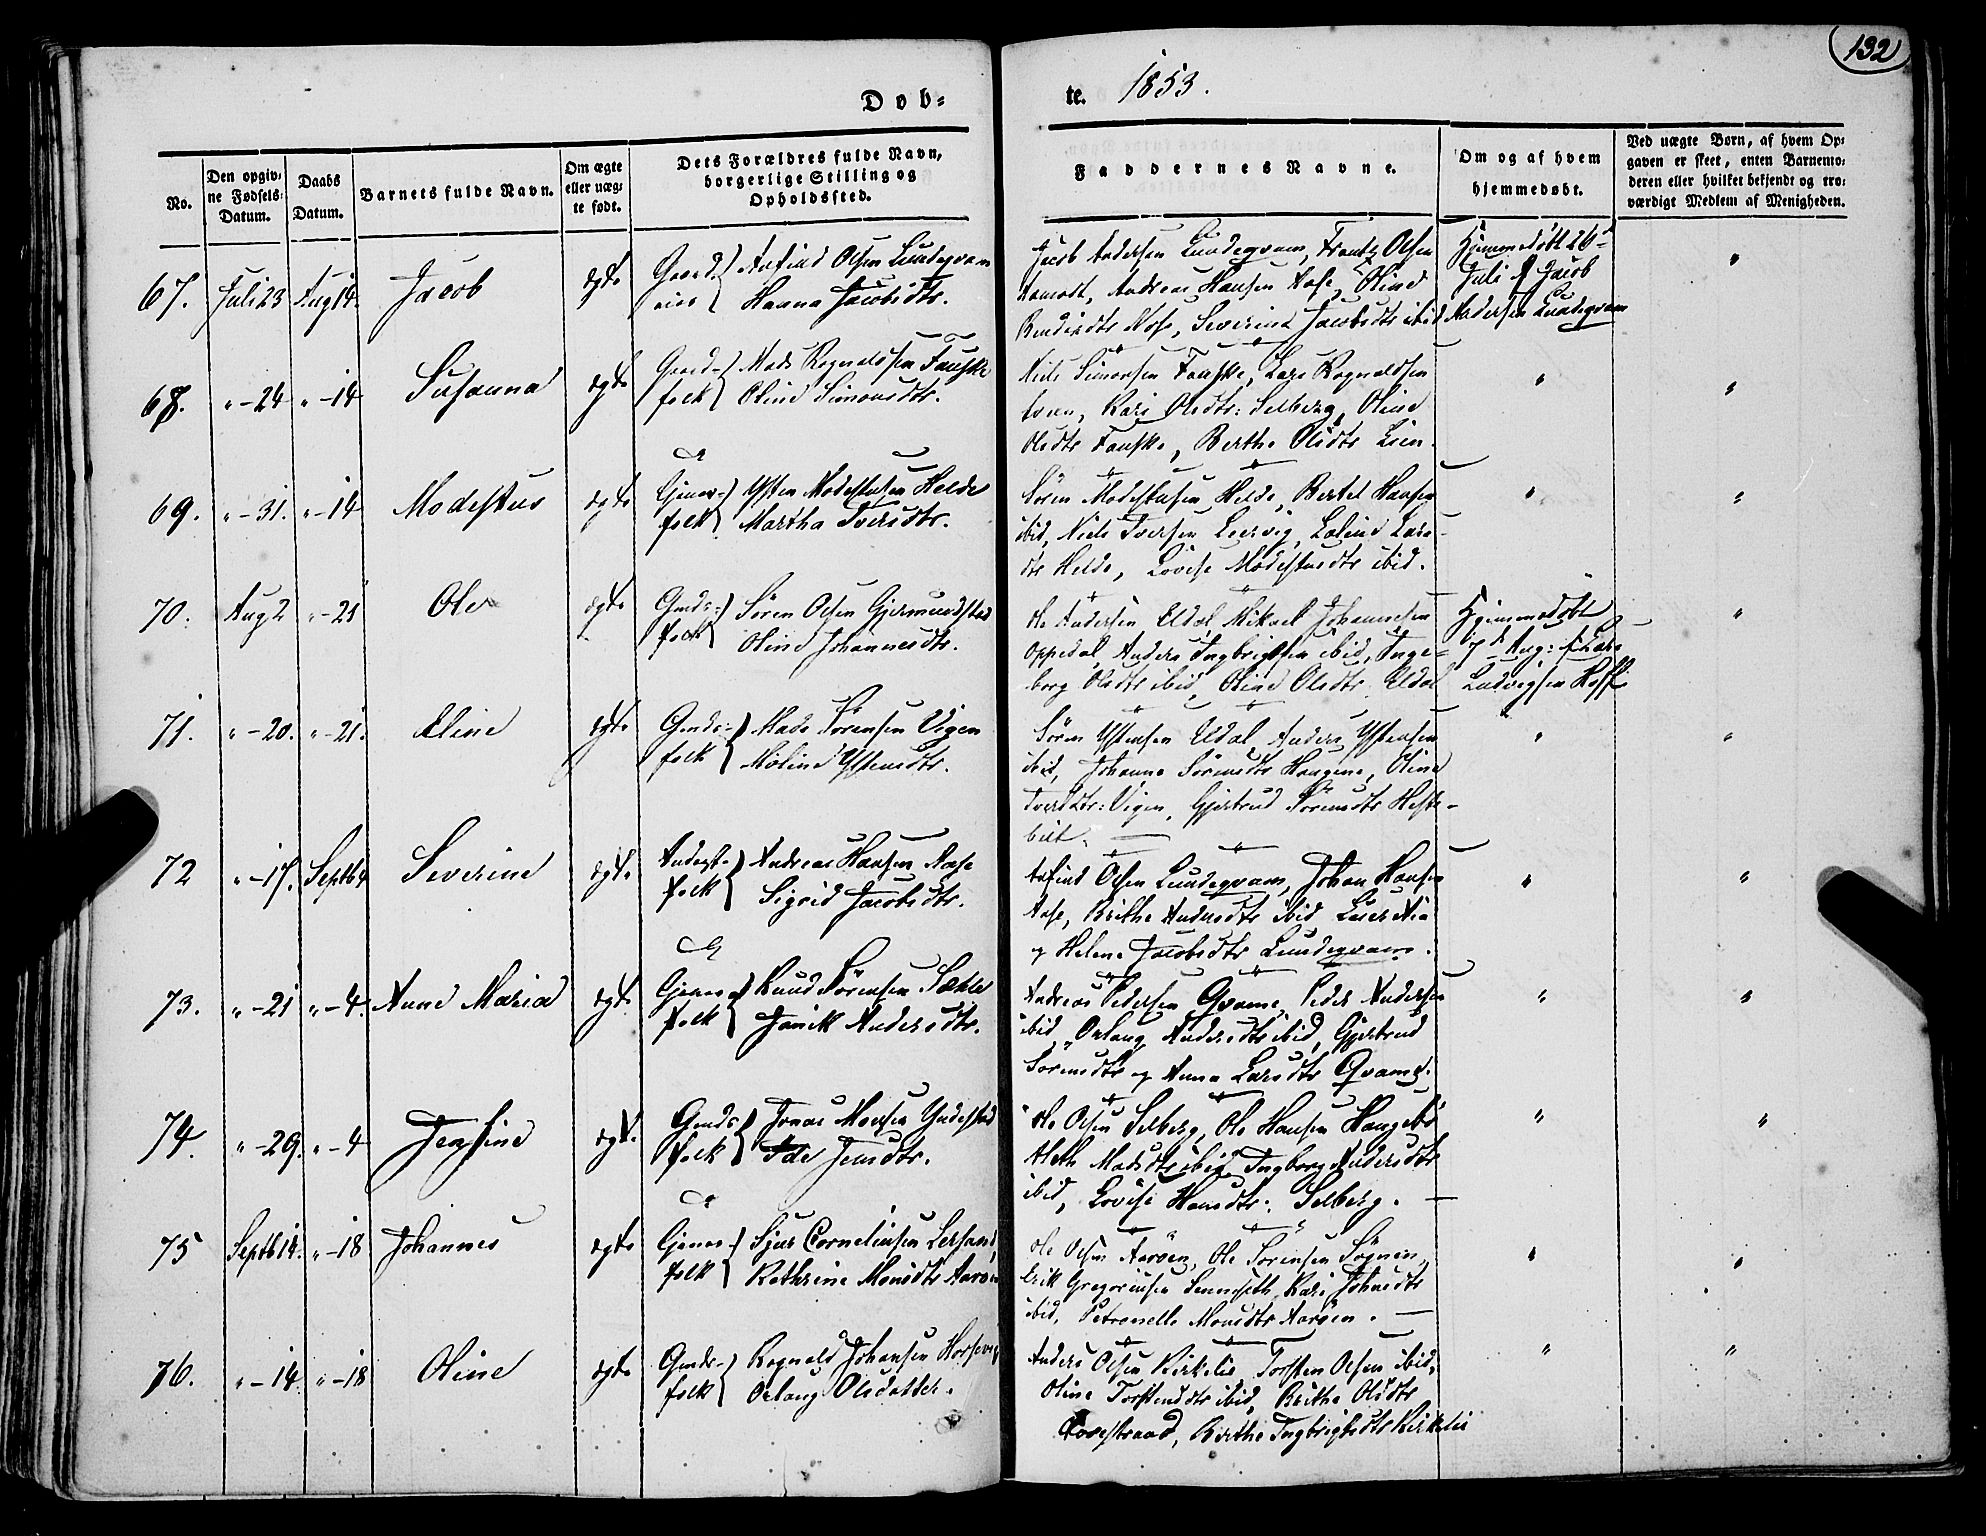 132
Døb= te. 1853.
No.
Den opgiv=
ne Fødsels=
Datum.
Daabs
Datum.
Barnets fulde Navn.
Om ægte
eller uæg=
te født.
Dets Forældres fulde Navn,
borgerlige Stilling og
Opholdssted.
Faddernes Navne.
Om og af hvem
hjemmedøbt.
Ved uægte Børn, af hvem Op=
gaven er skeet, enten Barnemo=
deren eller hvilket bekjendt og tro=
værdigt Medlem af Menigheden.
67. Juli 23 Aug 14. Jacob ægte Gaard- Anfind Olsen Lundeqvam
eier Hanna Jacobsdtr.
Jacob Andersen Lundeqvam, Frantz Olsen
Aamodt, Andreas Hansen Aase, Oline
Bendixdtr Aase, Severina Jacobsdtr ibid
Hjemmedøbt 26
Juli af Jacob
Andersen Lundeqvam
"
68. " -24 " -14 Susanna ægte Gaard- Mads Rognaldsen Fauske
folk Oline Simonsdtr.
Niels Simonsen Fauske, Lars Rognaldsen
Kari Olsdtr: Selberg, Oline
Olsdtr Fauske, Berthe Olsdtr Lien.
" "
69. " -31. " -14 Modestus ægte Gjener- Ysten Modestusen Helde
folk Martha Iversdtr.
Søren Modestusen Helde, Bertel Hansen
ibid, Niels Iversen Leervig, Laline Lars-
dtr Helde, Lovise Modestusdtr ibid.
" "
70. Aug 2 " -21 Ole ægte Gmds- Søren Olsen Gjermundstad
folk Oline Johannesdtr.
Ole Andersen Eldal, Mikael Johannesen
Oppedal, Anders Ingbrigtsen ibid, Inge-
borg Olsdtr ibid, Oline Olsdtr Eldal
Hjemmedøbt
7d Aug: af Lars
Ludvigsen
"
71. " -20. " -21. Eline ægte Gmds- Mads Sørensen Vigen
folk Moline Ystensdtr.
Søren Ystensen Eldal, Anders Ystensen
ibid, Johanna Sørensdtr Haugene, Oline
Iversdtr: Vigen, Gjertrud Sørensdtr Heste-
beit.
" "
72 " -17. Septb 4 Severine ægte Anderst- Andreas Hansen Aase
folk Sigrid Jacobsdtr.
Anfind Olsen Lundeqvam, Johan Hansen
Aase, Brithe Andersdtr ibid,
og Helene Jacobsdtr Lundeqvam.
" "
73. " -21 " -4. Anne Maria ægte Gjener- Knud Sørensen Sæhle
folk Janik Andersdtr.
Andreas Pedersen Qvamme, Peder Andersen
ibid, Orlaug Andersdtr ibid, Gjertrud
Sørensdtr og Anna Larsdtr Qvamme.
" "
74. " -29. " -4 Jensine ægte Gmds- Jonas Monsen Yndestad
folk Ida Jensdtr.
Ole Olsen Selberg, Ole Hansen Haugebø
Aleth Madsdtr ibid, Ingborg Andersdtr
ibid, Lovise Hansdtr: Selberg.
" "
75 Septb 14. " -18 Johannes ægte Gjener- Sjur Corneliusen Lersand,
folk Kathrine Monsdtr Aarøen
Ole Olsen Aarøen, Ole Sørensen Sognen,
Erik Gregoriusen Sunnseth, Kari Johnsdtr
ibid, Petronelle Monsdtr Aarøen.
" "
76. " -14. " -18 Oline ægte Gmds- Rognald Johansen Horsevig
folk Orlaug Olsdatter.
Anders Olsen Kirkelie, Torsten Olsen ibid,
Oline Torstensdtr ibid, Brithe Olsdtr
Berthe Ingbrigtsdtr Kirkelie
" "